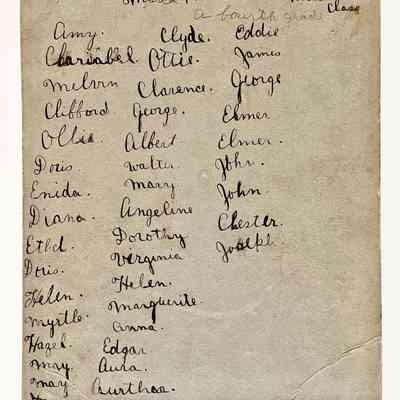 Class
a fourth grade
Amy. Clyde. Eddie
Clariabel. Ottie. James
Melvin Clarence. George
Clifford George. Elmer
Ollie Albert Elmer.
Doris Walter. John.
Enida. Mary John.
Diana. Angeline Chester.
Ethel. Dorothy Joseph.
Doris. Verginia
Helen. Helen.
Myrtle. Marguerite.
Hazel. Anna.
May. Edgar
May Aura.